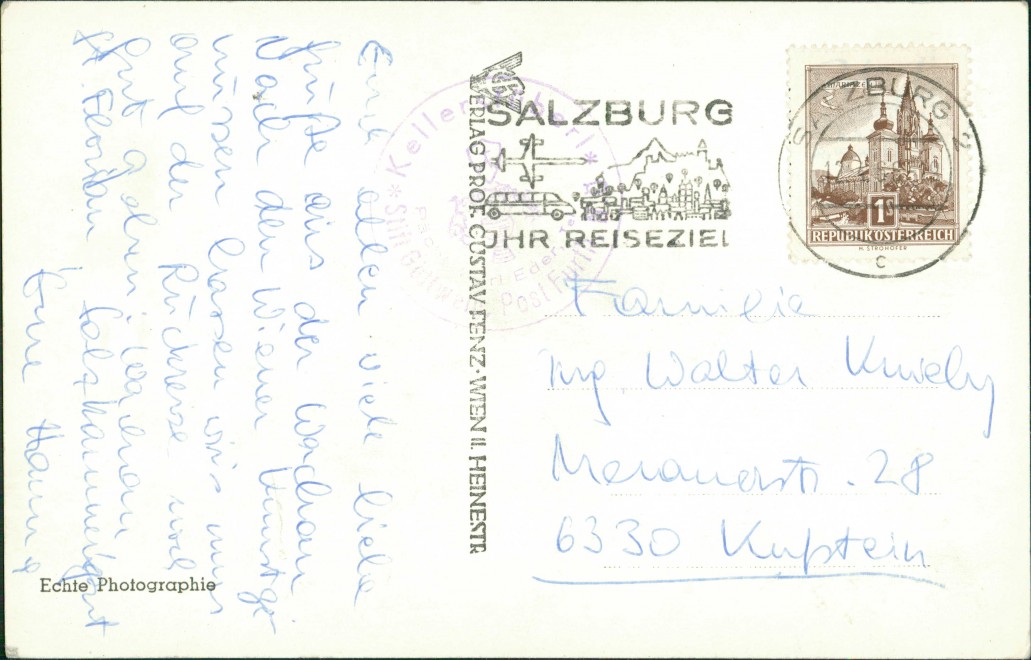 Euch allen viele liebe
Grüße aus der Wachau
Nach den Wiener
müssen lassen wir's uns
auf der Rückreise noch
gut gehen
St. Florian Salzkammergut
Eure Hanne
Echte Photographie
VERLAG PROF. GUSTAV FENZ·WIEN II. HEINESTR
*Keller *
*Stift Göttweig Post Furth
SALZBURG
IHR REISEZIEL
SALZBURG 2
C
1S
REPUBLIK ÖSTERREICH
H. STROHOFER
Familie
Ing Walter
Meranerstr. 28
6330 Kufstein